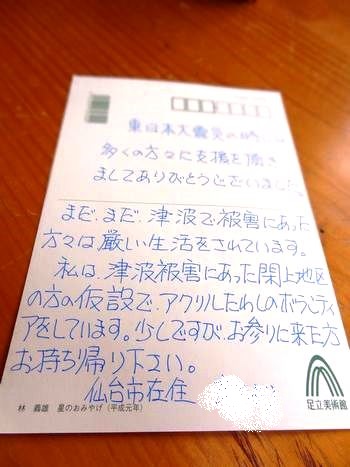 東日本大震災の時には
多くの方々に支援を頂き
ましてありがとうございました
まだ、まだ、津波で被害にあった
方々は厳しい生活をされています。
私は、津波被害にあった閖上地区
の方の仮設で、アクリルたわしのボランティ
アをしています。少しですが、お参りに来た方
お持ち帰り下さい。
仙台市在住
林 義雄 星のおみやげ（平成元年）
足立美術館